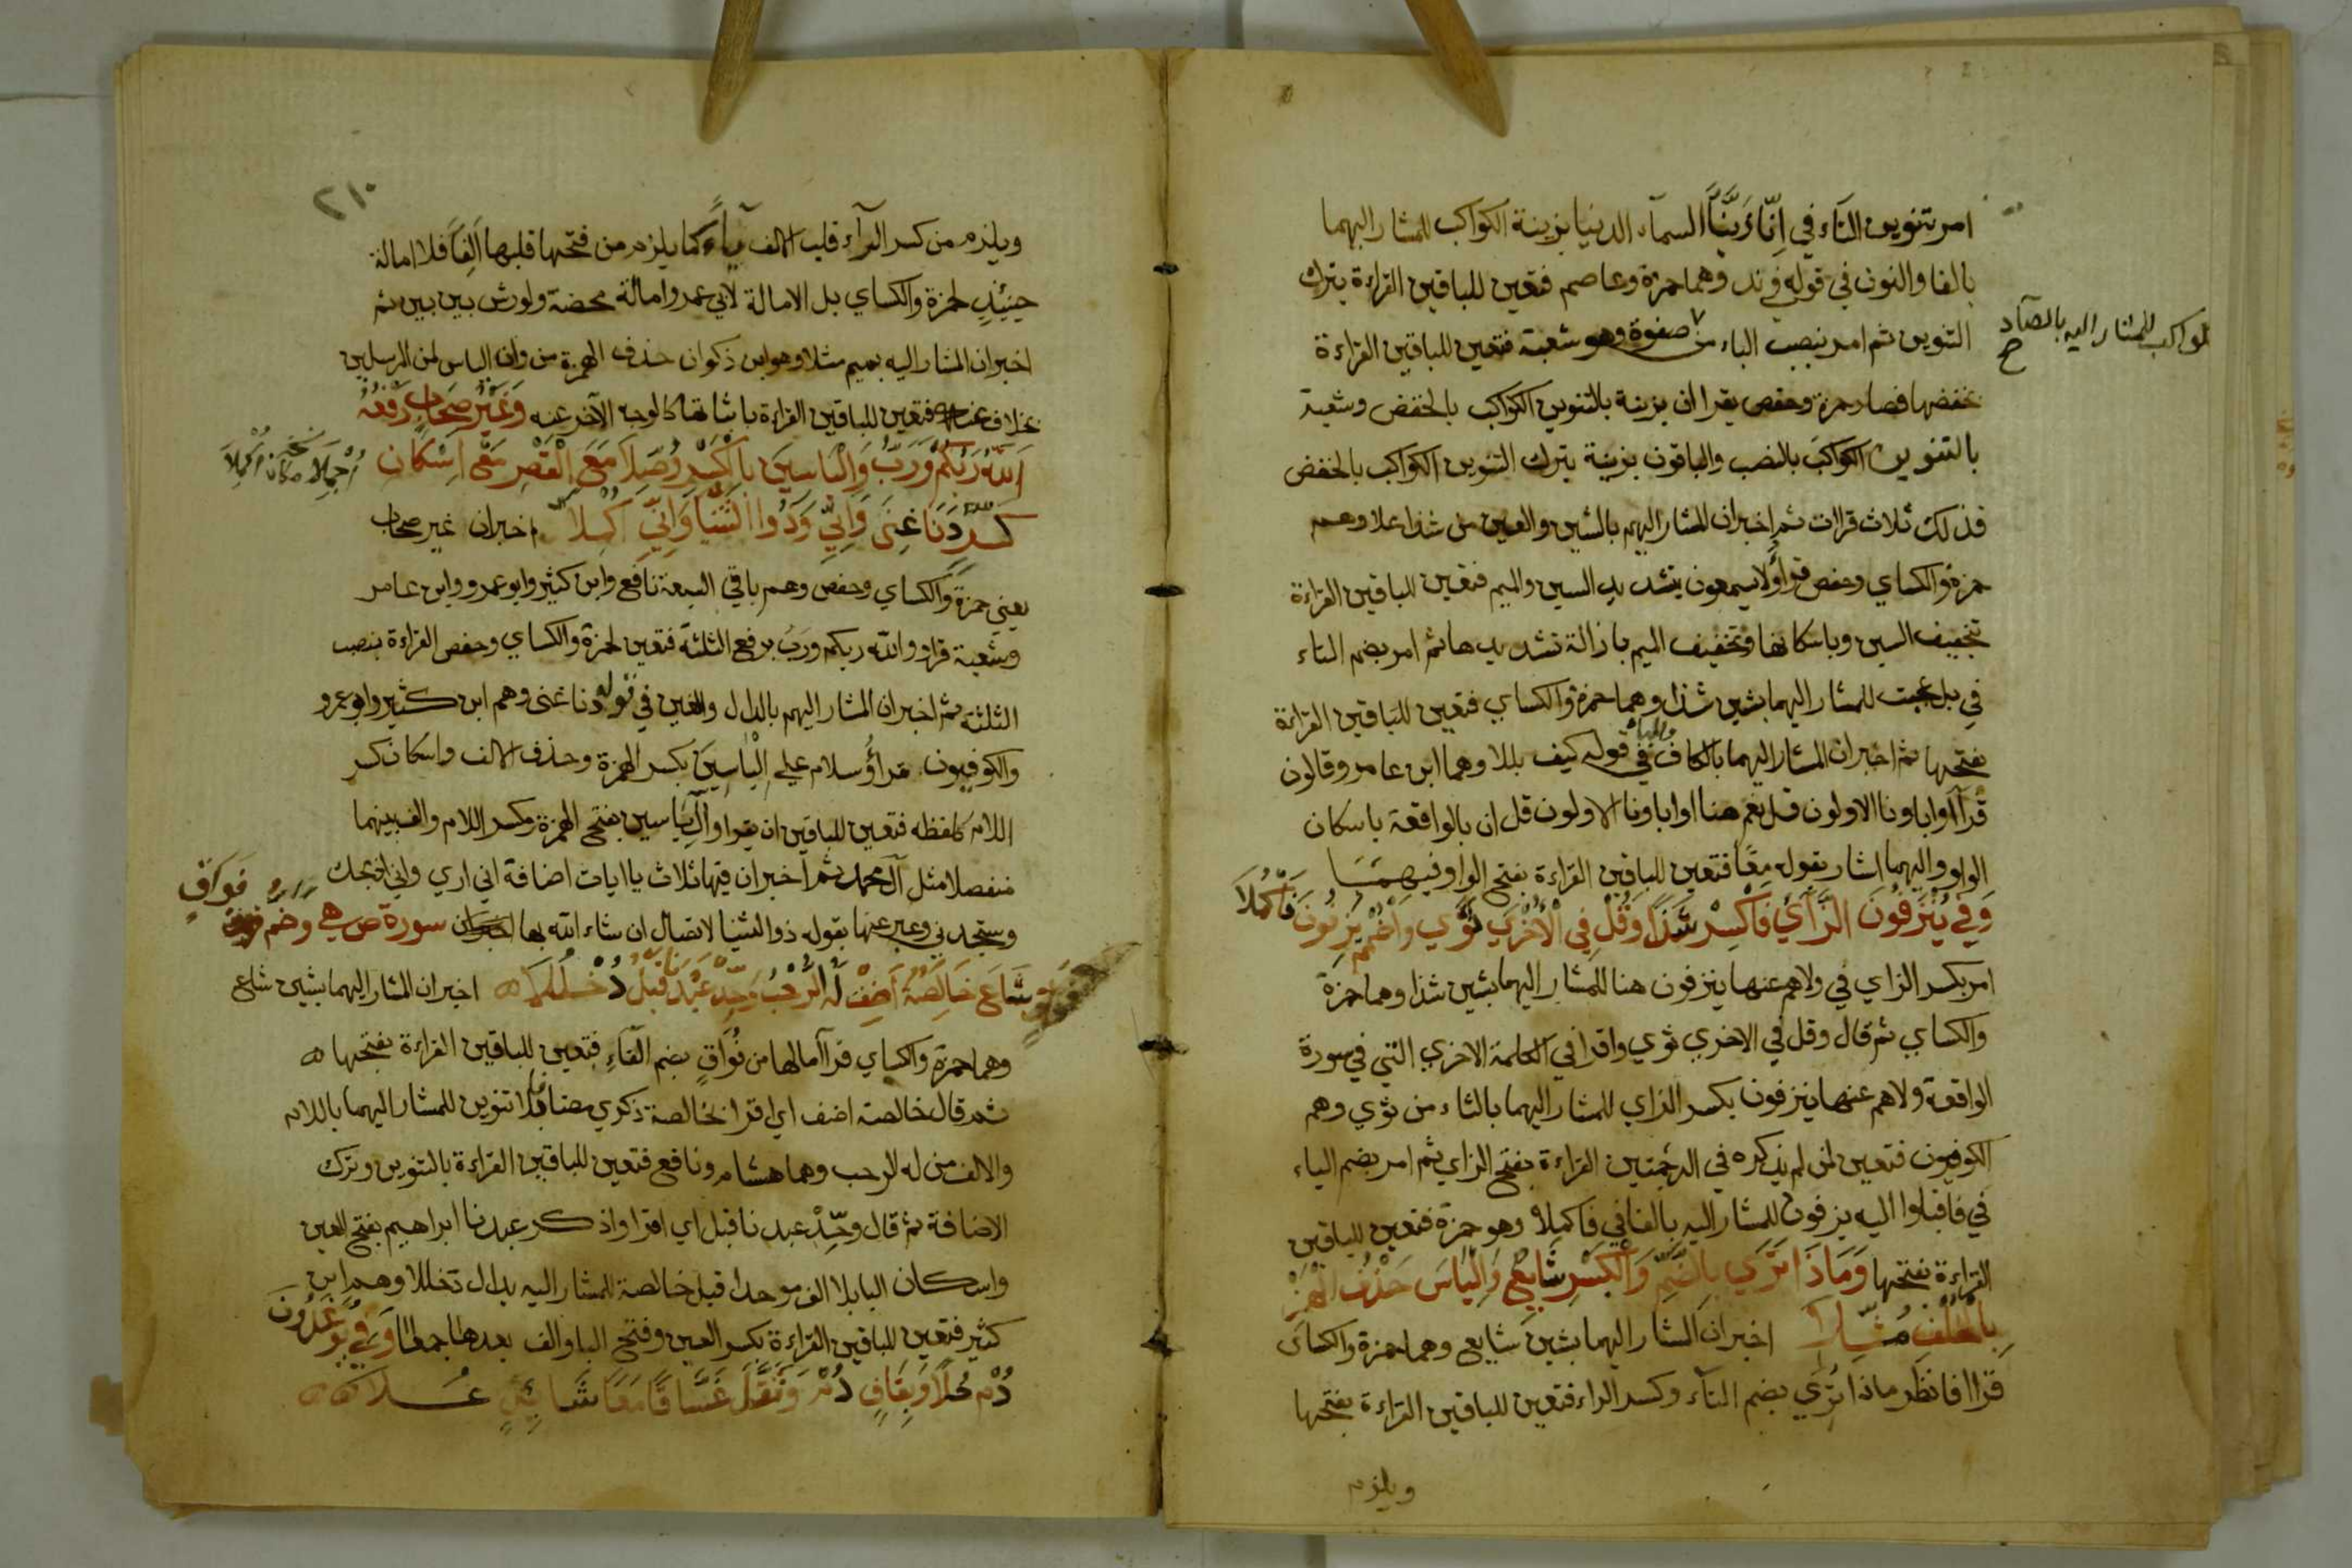 امر تنوين التاء في اِنّا زَيَّنَّا السمآء الدنيا بزينة الكواكب للمشار اليهما
بالفا والنون في قوله في ند وهما حمزة وعاصم فتعين للباقين القراءة بترك
التنوين ثم امر بنصب الباء من صفوة وهو شعبة فتعين للباقين القراءة
الكواكب للمشار اليه بالصآد
بخفضها فصار حمزة وحفص يقرا ان بزينة بالتنوين الكواكب بالخفض وشعبة
بالتنوين الكواكبَ بالنصب والباقون بزينة بترك التنوين الكواكب بالخفض
فذلك ثلاث قراات ثم اخبر ان المشار اليهم بالشين والعين من شذا علا وهم
حمزة والكساي وحفص قرأوُا لا يسمعون بتشديد السين والميم فتعين للباقين القراءة
تخفيف السين وباسكانها وتخفيف الميم بازالة تشديدها ثم امر بضم التاء
في بل عجبت للمشار اليهما بشين شذا وهما حمزة والكساي فتعين للباقين القراءة
بفتحها ثم اخبر ان المشار اليهما بالكاف والباء في قوله كيف بللا وهما ابن عامر وقالون
قرآ اَوْ اباونا الاولون قل نعم هنا او اباونا الاولون قل ان بالواقعة باسكان
الواو واليهما اشار بقوله معًا فتعين للباقين القراءة بفتح الواو فيهمَـا
وَفِي يُنْزَفُونَ الزَّايَ فَاكْسِرْ شَذًا وَقُلْ فِي الْأُخْرَي ثَوَي وَاضْمُمْ يَزِفُّونَ فَاكْمُلاَ
امر بكسر الزاي في ولا هم عنها ينزفون هنا للمشار اليهما بشين شذا وهما حمزة
والكساي ثم قال وقل في الاخري ثوي واقرا في الكلمة الاخري التي في سورة
الواقعة ولا هم عنها ينزفون بكسر الزاي للمشار اليهما بالثاء من ثوي وهم
الكوفيون فتعين لمن لم يذكره في الترجمتين القراءة بفتح الزاي ثم امر بضم الياء
في فاقبلوا اليه يزفون للمشار اليه بالفا في فاكملا وهو حمزة فتعين للباقين
القراءة بفتحها وَمَاذَا تَرَي بِالضَّمِّ وَالْكَسْرِ شَايِعٌ وَاِلْيَاسَ حَذْفُ الْهَمْزِ
بِالْخُلْفِ مُثِّلاَ اخبر ان المشار اليهما بشين شايع وهما حمزة والكساى
قراا فانظر ماذا تُرِي بضم التآء وكسر الراء فتعين للباقين القراءة بفتحها
ويلزم
٢١٠
ويلزم من كسر الرآء قلب الالف يآءً كما يلزم من فتحها قلبها اَلِفًا فلا امالة
حينيذٍ لحمزة والكساي بل الامالة لابي عمرو امالة محضة ولورش بين بين ثم
اخبر ان المشار اليه بميم مثلا وهو ابن ذكوان حذف الهمزة من وان الياس لمن المرسلين
بخلاف عنه فتعين للباقين القراءة باثباتها كالوجه الآخر عنه وَغَيْرُ صِحَابٍ رَفْعُهُ
اَللّٰهُ رَبُّكُمْ وَرَبُّ وَاِلْيَاسِينَ بِالْكَسْرِ وُصِّلاَ مَعَ الْقَصْرِ مَعَ اِسْكَانِ
كَسْرٍ دَنَا غِنًى وَاِنِّي وَذُوا الثُّنْيَا وَاَنِّي اُجْمِلاَ اخبر ان غير صحاب
يعني حمزة والكساي وحفص وهم باقي السبعة نافع وابن كثير وابو عمرو وابن عامر
وشعبة قراو والله ربكم وربُّ برفع الثلثة فتعين لحمزة والكساي وحفص القراءة بنصب
الثلثة ثم اخبر ان المشار اليهم بالدال والغين في قوله دنا غنى وهم ابن كثير وابو عمرو
والكوفيون قرأوُ سلام على اِلْيَاسِينَ بكسر الهمزة وحذف الالف واسكان كسر
اللام كلفظه فتعين للباقين ان يقراو اآلِ ياسين بفتح الهمزة وكسر اللام والف بينهما
منفصلا مثل آل محمد ثم اخبر ان فيها ثلاث ياايات اضافة اني اري واني اذبحك
وستجدني وعبر عنها بقوله ذو الثنيا لاتصال ان شاء الله بها سورة ص هي وَضَمُّ فَوَاقٍ
شَاعَ خَالِصَةٍ اَضِفْ لَهُ الرَّحْبُ وَحِّدْ عَبْدَنَا قَبْلُ دُخْلُلاَ اخبر ان المشار اليهما بشين شاع
وهما حمزة والكساي قرآ مالها من فُوَاقٍ بضم الفآءِ فتعين للباقين القراءة بفتحها
ثم قال خالصة اضف اي اقرا بخالصة ذكري مضافا بلا تنوين للمشار اليهما باللام
والالف من له الرحب وهما هشام ونافع فتعين للباقين القراءة بالتنوين وترك
الاضافة ثم قال وحِّدْ عبدنا قبل اي اقرا واذكر عبدنا ابراهيم بفتح العين
واسكان البا بلا الف موحدا قبل خالصة للمشار اليه بدال دخللا وهو ابن
كثير فتعين للباقين القراءة بكسر العين وفتح البا والف بعدها جمعا وَفِي يُوعَدُونَ
دُمْ حُلاً وَبِقَافٍ دُمْ وَثَقَّلَ غَسَّاقًا مَعًا شَائِدٌ عُــلاَ